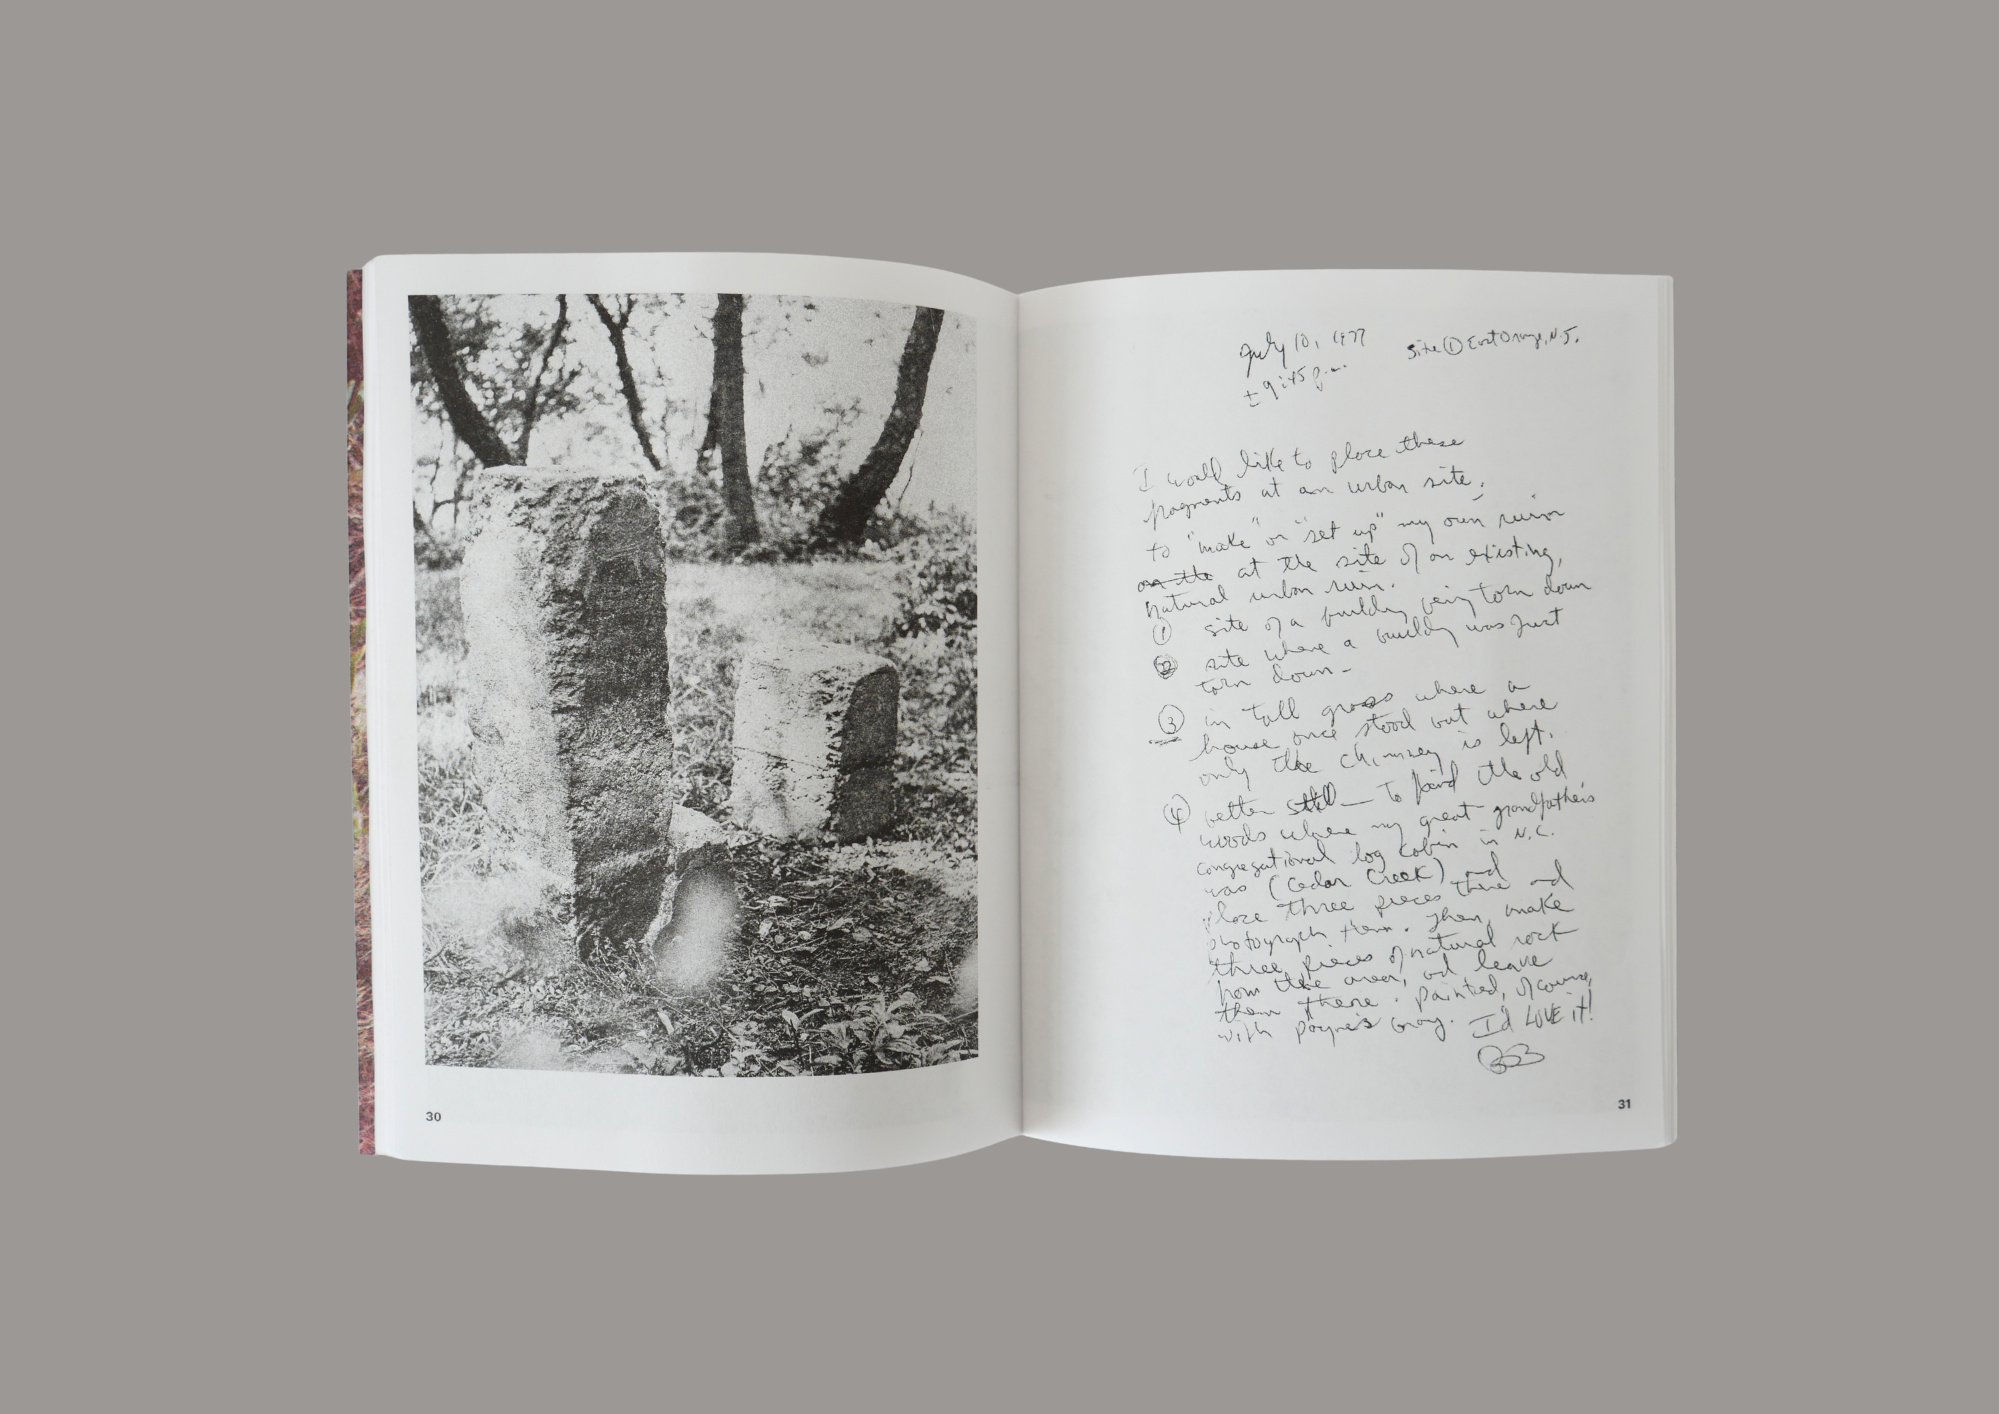 30
July 10, 1977
± 9:45 p.m.
Site ① East Orange, N.J.
I would like to place these
fragments at an urban site,
to "make" or "set up" my own ruin
on the at the site of an existing,
natural urban ruin.
① site of a building being torn down
② site where a building was just
torn down –
③ in tall grass where a
house once stood but where
only the chimney is left.
④ better still — to find the old
woods where my great-grandfather's
congregational log cabin in N.C.
was (Cedar Creek) and
place three pieces there and
photograph them. Then, make
three pieces of natural rock
from the area, and leave
them there. Painted, of course,
with Payne's Gray. I'd LOVE it!
31